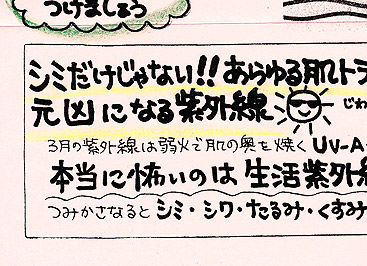 つけましょう
シミだけじゃない!! あらゆる肌トラ
元凶になる紫外線 じわ
3月の紫外線は弱火で肌の奥を焼く UV-A
本当に怖いのは 生活紫外線
つみかさなると シミ・シワ・たるみ・くすみ